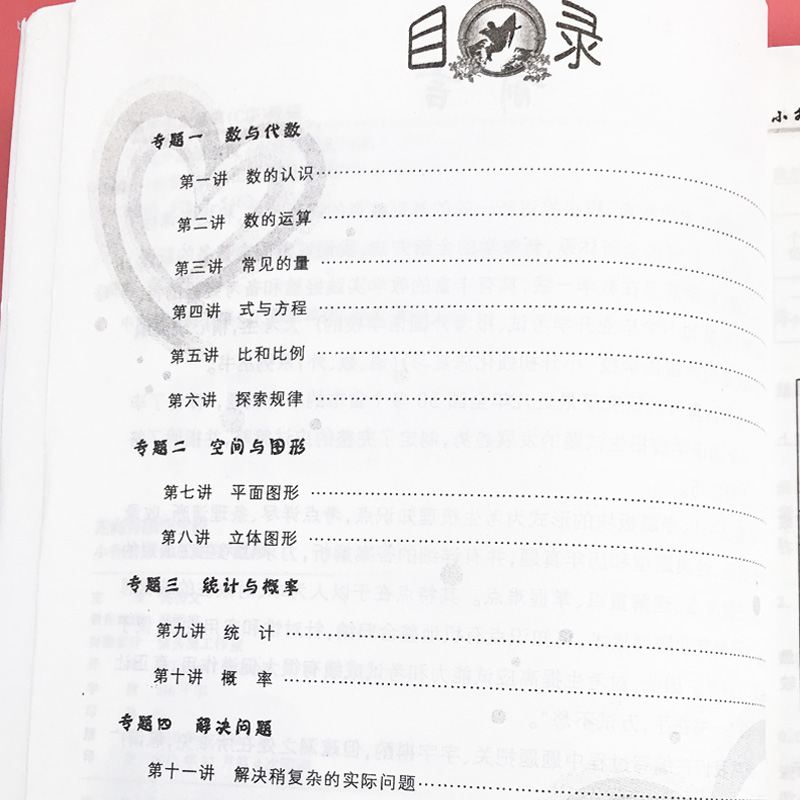 目录
专题一 数与代数
第一讲 数的认识
第二讲 数的运算
第三讲 常见的量
第四讲 式与方程
第五讲 比和比例
第六讲 探索规律
专题二 空间与图形
第七讲 平面图形
第八讲 立体图形
专题三 统计与概率
第九讲 统 计
第十讲 概 率
专题四 解决问题
第十一讲 解决稍复杂的实际问题
小